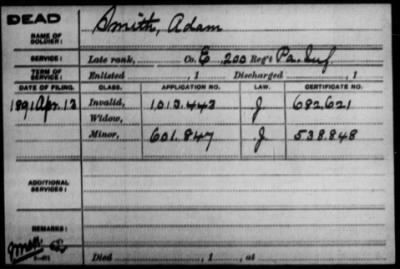 DEAD
NAME OF SOLDIER: Smith, Adam
SERVICE: Late rank, Co. E, 200 Reg't Pa. Inf
TERM OF SERVICE: Enlisted , 1 Discharged , 1
DATE OF FILING. CLASS. APPLICATION NO. LAW. CERTIFICATE NO.
1891 Apr. 13 Invalid, 1,013.443 J 682.621
Widow,
Minor, 601.847 J 538.848
ADDITIONAL SERVICES:
REMARKS:
Died , 1 , at